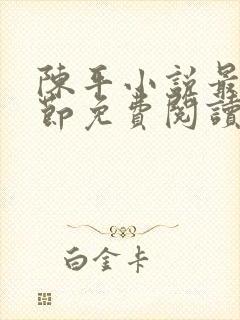 陳平小說最
節免費閱讀
白金卡